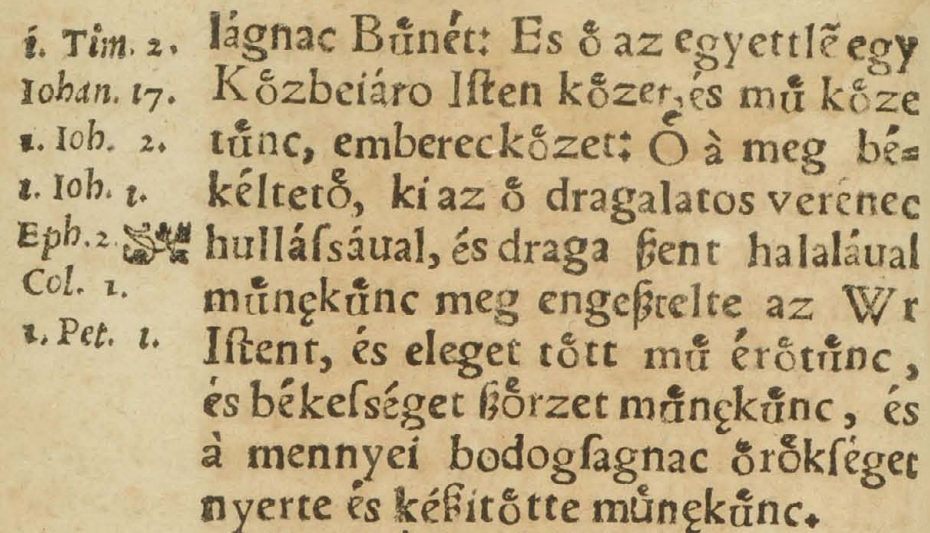 i. Tim. 2.
Iohan. 17.
1. Ioh. 2.
1. Ioh. 1.
Eph. 2.
Col. 1.
1. Pet. 1.
lágnac Bűnét: Es ő az egyettlẽ egy
Kőzbeiáro Iſten kőzet, és mű kőze
tűnc,ембereckőzet: Ő à meg bé⸗
kéltető, ki az ő dragalatos verénec
hulláſsáual, és draga ßent halaláual
műnękűnc meg engeßtelte az Wr
Iſtent, és eleget tőtt mű érőtűnc,
és békeſséget ßőrzet műnękűnc, és
à mennyei bodogſagnac őrőkſéget
nyerte és kéßitőtte műnękűnc.